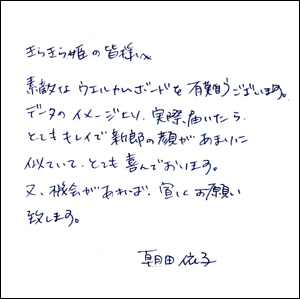 きらきら姫の皆様へ
素敵なウエルカムボードを有難うございます。
データのイメージより、実際、届いたら
とてもキレイで新郎の顔があまりに
似ていて、とても喜んでおります。
又、機会があれば、宜しくお願い
致します。
朝田依子